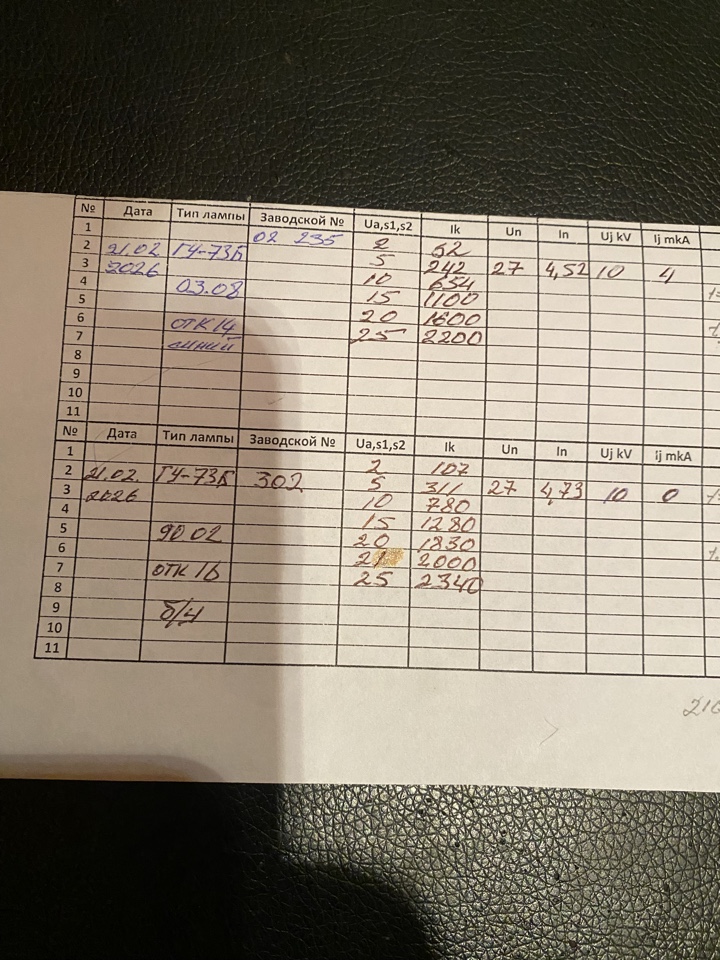 № Дата Тип лампы Заводской № Ua,s1,s2 Ik Un In Uj kV Ij mkA
1 02 235 2 52
2 21.02 ГУ-73Б 5 242 27 4,52 10 4
3 2026 10 654
4 03.08 15 1100
5 20 1600
6 ОТК 14 25 2200
7 синий
8
9
10
11
№ Дата Тип лампы Заводской № Ua,s1,s2 Ik Un In Uj kV Ij mkA
1 2 107
2 21.02. ГУ-73Б 302 5 311 27 4,73 10 0
3 2026 10 780
4 15 1280
5 90 02 20 1830
6 21 2000
7 ОТК 16 25 2340
8
9 б/н
10
11